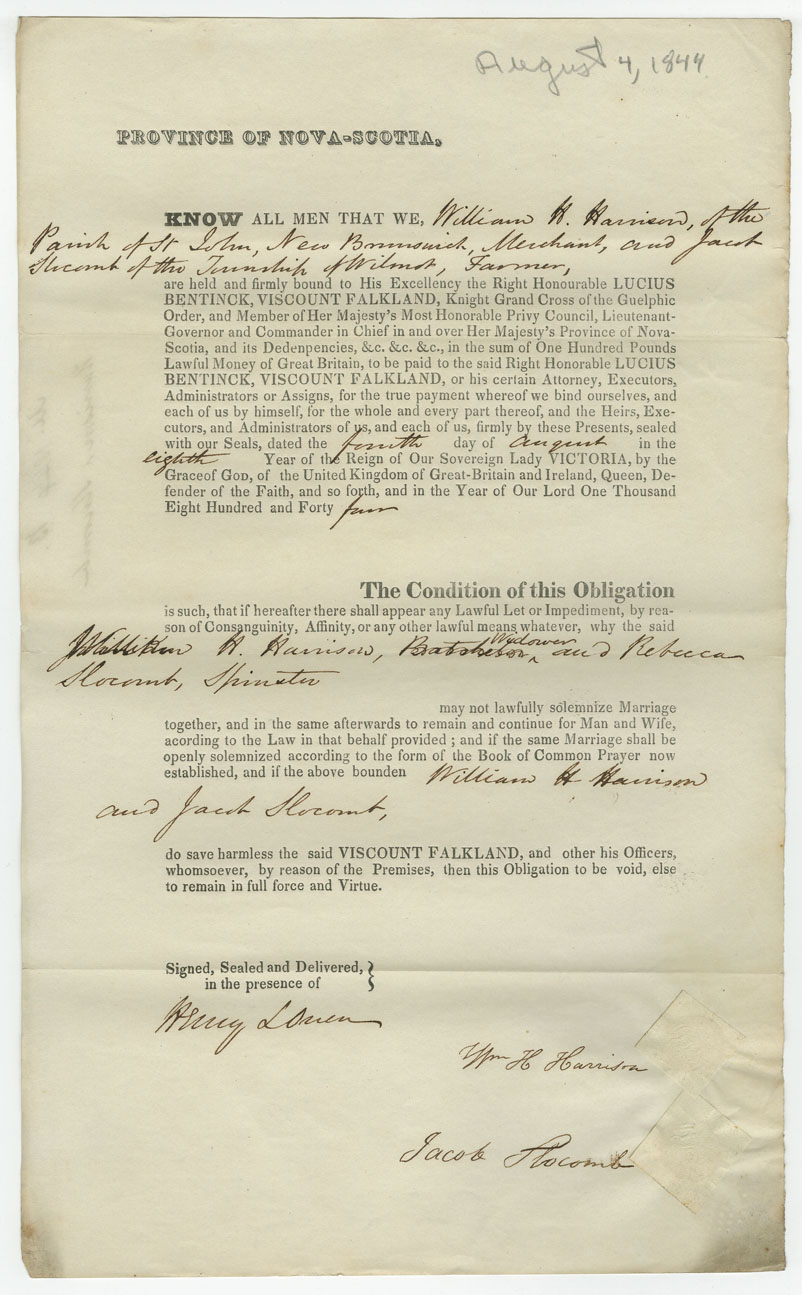 August 4, 1844
PROVINCE OF NOVA-SCOTIA,
KNOW ALL MEN THAT WE, William H. Harrison, of the
Parish of St John, New Brunswick, Merchant, and Jacob
Slocomb of the Township of Wilmot, Farmer,
are held and firmly bound to His Excellency the Right Honourable LUCIUS
BENTINCK, VISCOUNT FALKLAND, Knight Grand Cross of the Guelphic
Order, and Member of Her Majesty's Most Honorable Privy Council, Lieutenant-
Governor and Commander in Chief in and over Her Majesty's Province of Nova-
Scotia, and its Dedenpencies, &c. &c. &c., in the sum of One Hundred Pounds
Lawful Money of Great Britain, to be paid to the said Right Honorable LUCIUS
BENTINCK, VISCOUNT FALKLAND, or his certain Attorney, Executors,
Administrators or Assigns, for the true payment whereof we bind ourselves, and
each of us by himself, for the whole and every part thereof, and the Heirs, Exe-
cutors, and Administrators of us, and each of us, firmly by these Presents, sealed
with our Seals, dated the fourth day of august in the
eighth Year of the Reign of Our Sovereign Lady VICTORIA, by the
Graceof GOD, of the United Kingdom of Great-Britain and Ireland, Queen, De-
fender of the Faith, and so forth, and in the Year of Our Lord One Thousand
Eight Hundred and Forty four
The Condition of this Obligation
is such, that if hereafter there shall appear any Lawful Let or Impediment, by rea-
son of Consanguinity, Affinity, or any other lawful means whatever, why the said
Wydower
William H. Harrison, Batchelor, and Rebecca
Slocomb, Spinster
may not lawfully solemnize Marriage
together, and in the same afterwards to remain and continue for Man and Wife,
acording to the Law in that behalf provided ; and if the same Marriage shall be
openly solemnized according to the form of the Book of Common Prayer now
established, and if the above bounden William H Harrison
and Jacob Slocomb,
do save harmless the said VISCOUNT FALKLAND, and other his Officers,
whomsoever, by reason of the Premises, then this Obligation to be void, else
to remain in full force and Virtue.
Signed, Sealed and Delivered,
in the presence of
Henry L Owen
Wm H Harrison
Jacob Slocomb